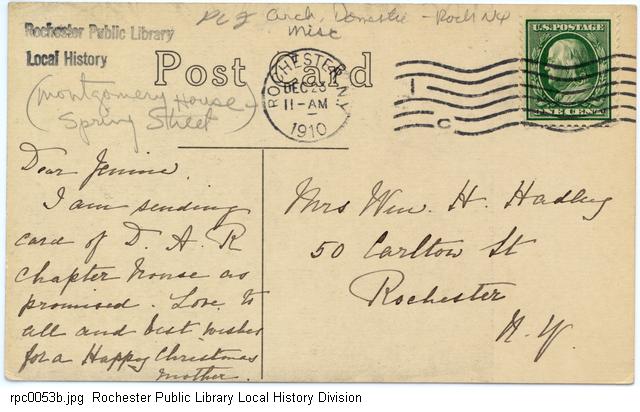 Rochester Public Library
Local History
Arch, Domestic - Roch NY
Misc
Post Card
ROCHESTER, N.Y.
DEC 23
11-AM
1910
1
C
U.S. POSTAGE
ONE CENT
(Montgomery House
Spring Street)
Dear Jennie,
I am sending
card of D. A. R
Chapter House as
promised. Love to
all and best wishes
for a Happy Christmas
Mother.
Mrs Wm. H. Hadley
50 Carlton St
Rochester
N. Y.
rpc0053b.jpg Rochester Public Library Local History Division